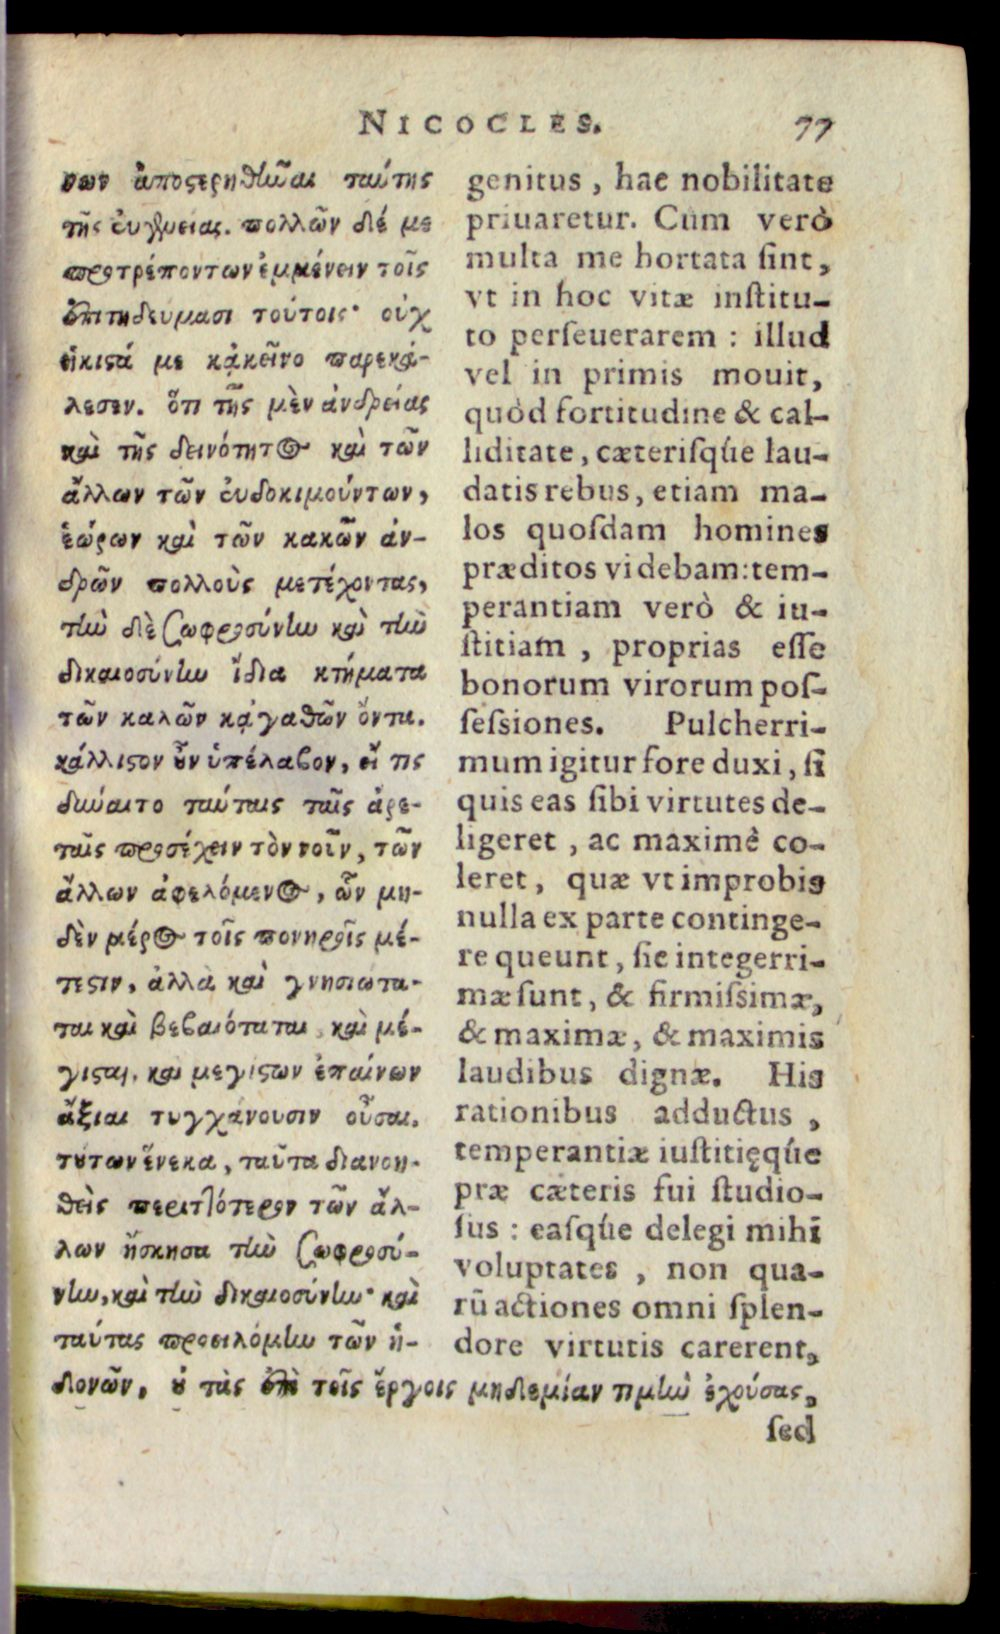 NICOCLES. 77
νων ἀποστερηθῆναι ταύτης
τῆς εὐγενείας. πολλῶν δέ με
προτρέποντων ἐμμένειν τοῖς
ἐπιτηδεύμασι τούτοις· οὐχ
ἥκιστά με κᾀκεῖνο παρεκά-
λεσεν. ὅτι τῆς μὲν ἀνδρείας
καὶ τῆς δεινότητος καὶ τῶν
ἄλλων τῶν εὐδοκιμούντων,
ἑώρων καὶ τῶν κακῶν ἀν-
δρῶν πολλοὺς μετέχοντας,
τὴν δὲ σωφροσύνην καὶ τὴν
δικαιοσύνην ἴδια κτήματα
τῶν καλῶν κᾀγαθῶν ὄντα.
κάλλιστον οὖν ὑπέλαβον, εἴ τις
δύναιτο ταύταις ταῖς ἀρε-
ταῖς προσέχειν τὸν νοῦν, τῶν
ἄλλων ἀφελόμενος, ὧν μη-
δὲν μέρος τοῖς πονηροῖς μέ-
τεστιν, ἀλλὰ καὶ γνησιώτα-
ται καὶ βεβαιόταται καὶ μέ-
γισται, και μεγίστων ἐπαίνων
ἄξιαι τυγχάνουσιν οὖσαι.
τούτων ἕνεκα, ταῦτα διανοη-
θεὶς περιττότερον τῶν ἄλ-
λων ἤσκησα τὴν σωφροσύ-
νην, καὶ τὴν δικαιοσύνην· καὶ
ταύτας προειλόμην τῶν ἡ-
δονῶν, οὐ τὰς ἐπὶ τοῖς ἔργοις μηδεμίαν τιμὴν ἐχούσας,
genitus, hac nobilitate
priuaretur. Cùm verò
multa me hortata ſint,
vt in hoc vitæ inſtitu-
to perſeuerarem : illud
vel in primis mouit,
quòd fortitudine & cal-
liditate, cæteriſqúe lau-
datis rebus, etiam ma-
los quoſdam homines
præditos videbam: tem-
perantiam verò & iu-
ſtitiam, proprias eſſe
bonorum virorum poſ-
ſeſsiones. Pulcherri-
mum igitur fore duxi, ſi
quis eas ſibi virtutes de-
ligeret, ac maximè co-
leret, quæ vt improbis
nulla ex parte continge-
re queunt, ſic integerri-
mæ ſunt, & firmiſsimæ,
& maximæ, & maximis
laudibus dignæ. His
rationibus adductus,
temperantiæ iuſtitięqúe
præ cæteris fui ſtudio-
ſus : eaſqúe delegi mihi
voluptates, non qua-
rū actiones omni ſplen-
dore virtutis carerent,
ſed